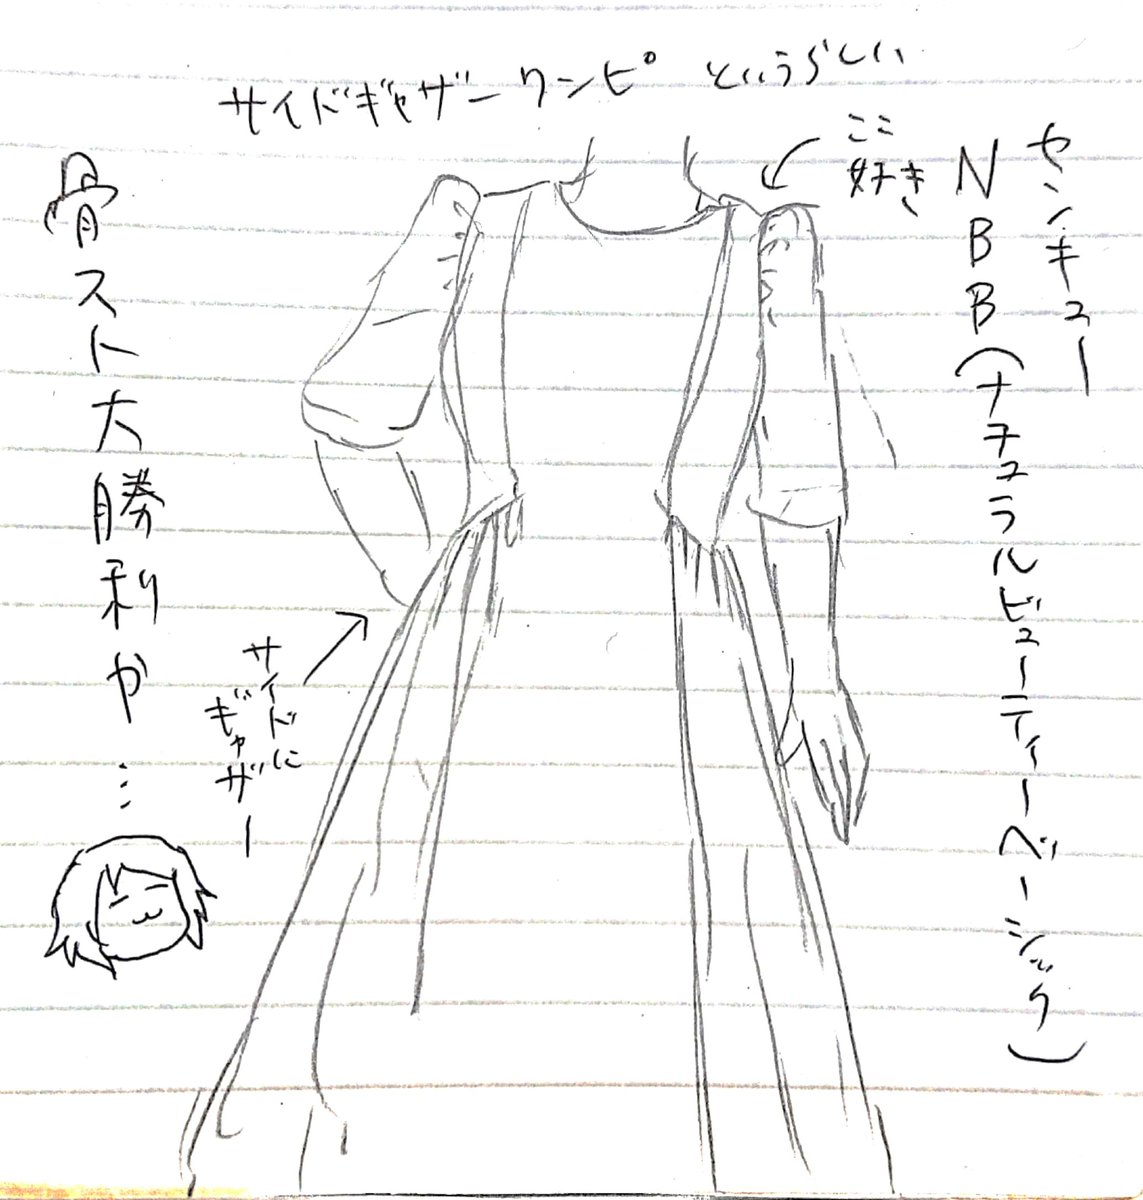 サイドギャザーワンピ というらしい
ここ
好き
センキュー
NBB(ナチュラルビューティーベーシック)
サイドに
ギャザー
骨スト大勝利や…